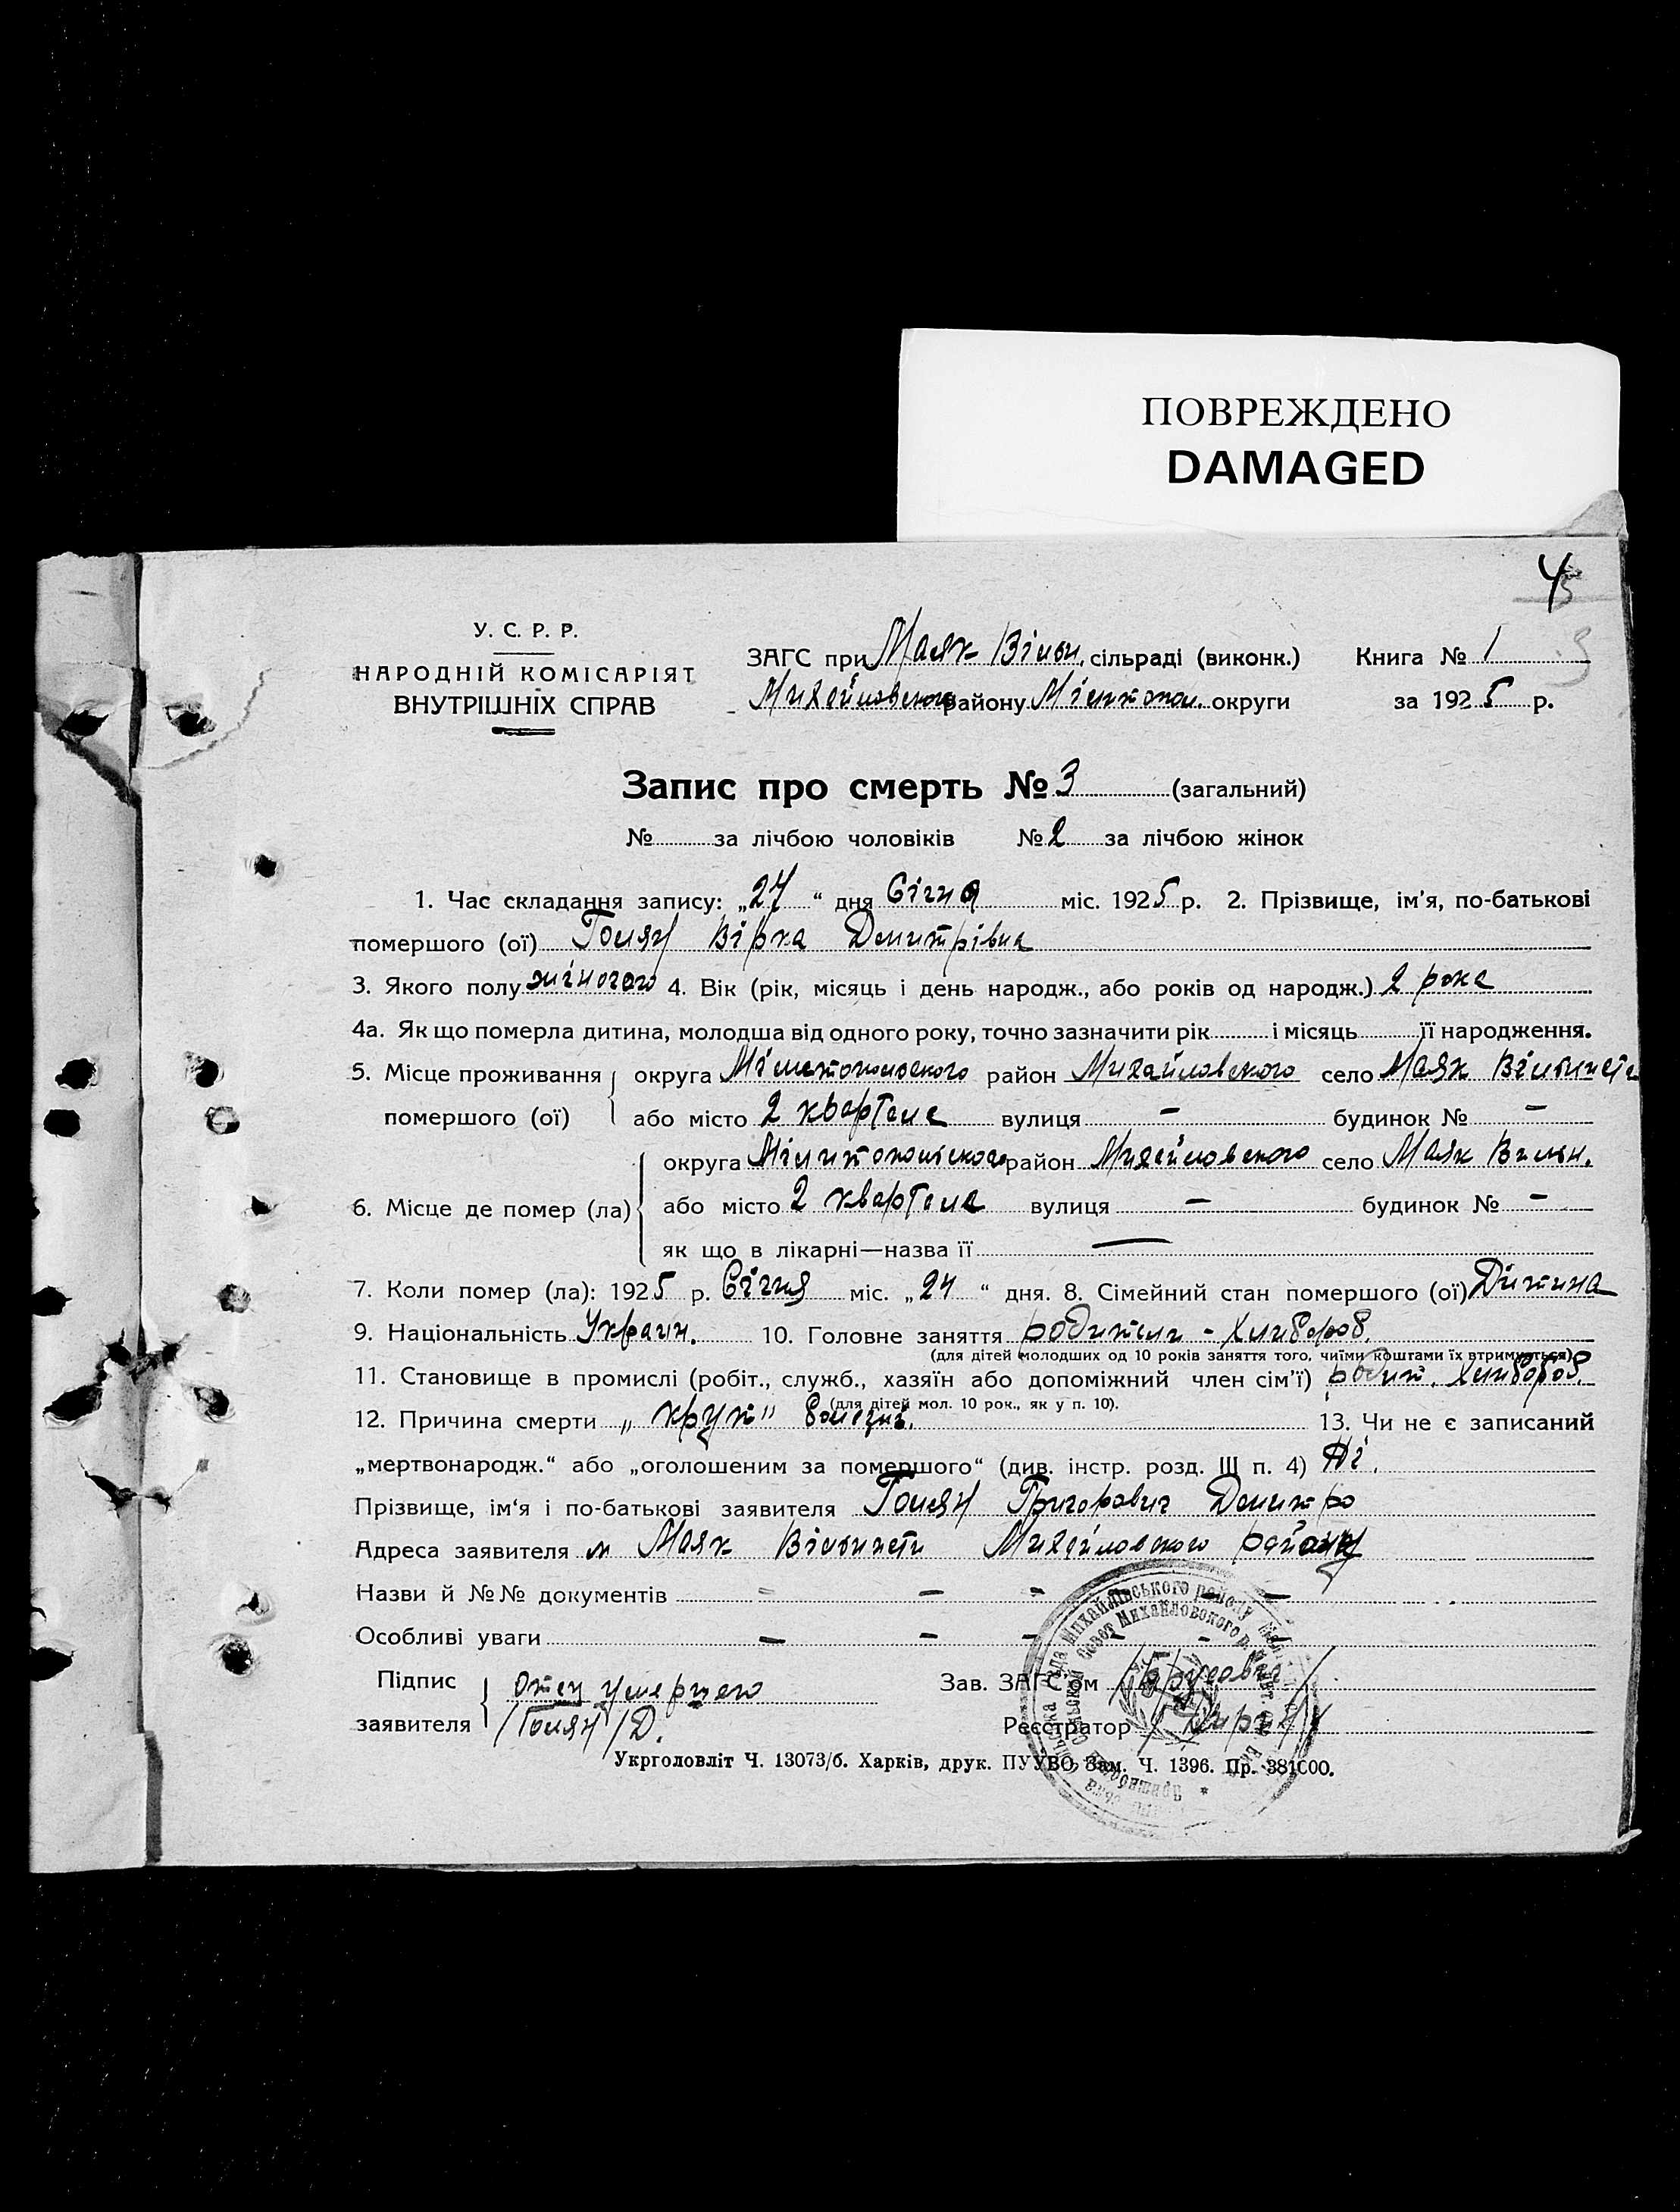 ПОВРЕЖДЕНО
DAMAGED
4
У. С. Р. Р.
НАРОДНІЙ КОМІСАРІЯТ
ВНУТРІШНІХ СПРАВ
ЗАГС при Маяк Вільн. сільраді (виконк.) Книга № 1
Михайловского району Мілитопол. округи за 1925 р.
Запис про смерть № 3 (загальний)
№ за лічбою чоловіків № 2 за лічбою жінок
1. Час складання запису: „27“ дня Січня міс. 1925 р. 2. Прізвище, ім'я, по-батькові
помершого (ої) Голян Вірка Дмитрівна
3. Якого полу жіночого 4. Вік (рік, місяць і день народж., або років од народж.) 2 рока
4а. Як що померла дитина, молодша від одного року, точно зазначити рік і місяць її народження.
5. Місце проживання округа Мілитопольского район Михайловского село Маяк Вільности
помершого (ої) або місто 2 квартала вулиця — будинок № —
округа Мілитопольского район Михайловского село Маяк Вильн.
6. Місце де помер (ла) або місто 2 квартала вулиця — будинок № —
як що в лікарні—назва її —
7. Коли помер (ла): 1925 р. Січня міс. „24“ дня. 8. Сімейний стан помершого (ої) Дитина
9. Національність Украин. 10. Головне заняття родители - хлибороб.
(для дітей молодших од 10 років заняття того, чиїми коштами їх втримується)
11. Становище в промислі (робіт., служб., хазяїн або допоміжний член сім'ї) родит. хлибороб.
(для дітей мол. 10 рок., як у п. 10).
12. Причина смерти „круп" болезнь. 13. Чи не є записаний
„мертвонародж.“ або „оголошеним за помершого“ (див. інстр. розд. III п. 4) Ні.
Прізвище, ім'я і по-батькові заявителя Голян Григорович Дмитро
Адреса заявителя Маяк Вільности Михайловского району
Назви й №№ документів – – – – –
Особливі уваги – – – – –
Підпис отец умершего Зав. ЗАГС'ом
заявителя /Голян/Д. Реєстратор
Укрголовліт Ч. 13073/б. Харків, друк. ПУУВО, Зам. Ч. 1396. Пр. 381000.